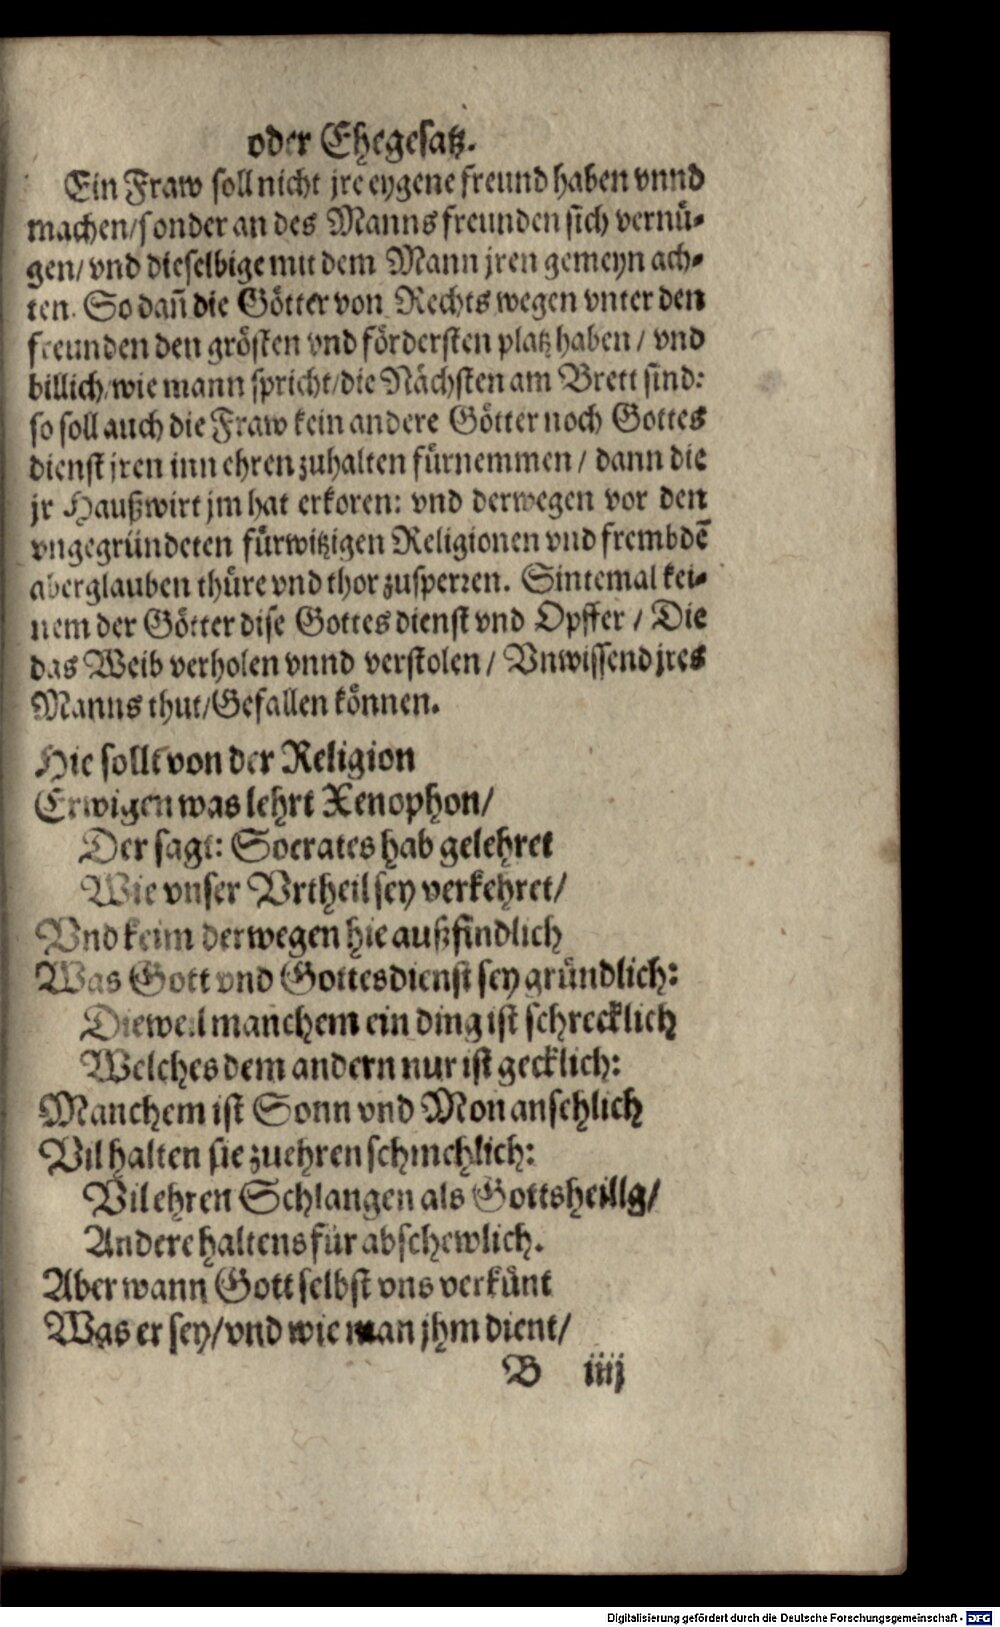 oder Ehegesatz.
Ein Fraw soll nicht jre eygene freund haben vnnd
machen/sonder an des Manns freunden sich vernuͤ-
gen/ vnd dieselbige mit dem Mann jren gemeyn ach-
ten. So dañ die Goͤtter von Rechts wegen vnter den
freunden den groͤsten vnd foͤrdersten platz haben / vnd
billich/wie mann spricht/die Naͤchsten am Brett sind:
so soll auch die Fraw kein andere Goͤtter noch Gottes
dienst jren inn ehren zuhalten fuͤrnemmen / dann die
jr Haußwirt jm hat erkoren: vnd derwegen vor den
vngegruͤndeten fuͤrwitzigen Religionen vnd frembdē
aberglauben thuͤre vnd thor zusperren. Sintemal kei-
nem der Goͤtter dise Gottes dienst vnd Opffer / Die
das Weib verholen vnnd verstolen / Vnwissend jres
Manns thut/Gefallen koͤnnen.
Hie sollt von der Religion
Erwigen was lehrt Xenophon/
Der sagt: Socrates hab gelehret
Wie vnser Vrtheil sey verkehret/
Vnd keim derwegen hie außfindlich
Was Gott vnd Gottesdienst sey gruͤndlich:
Dieweil manchem ein ding ist schrecklich
Welches dem andern nur ist gecklich:
Manchem ist Sonn vnd Mon ansehlich
Vil halten sie zuehren schmehlich:
Vil ehren Schlangen als Gottsheillg/
Andere haltens fuͤr abschewlich.
Aber wann Gott selbst vns verkuͤnt
Was er sey/vnd wie man jhm dient/
B iiij
Digitalisierung gefördert durch die Deutsche Forschungsgemeinschaft - DFG